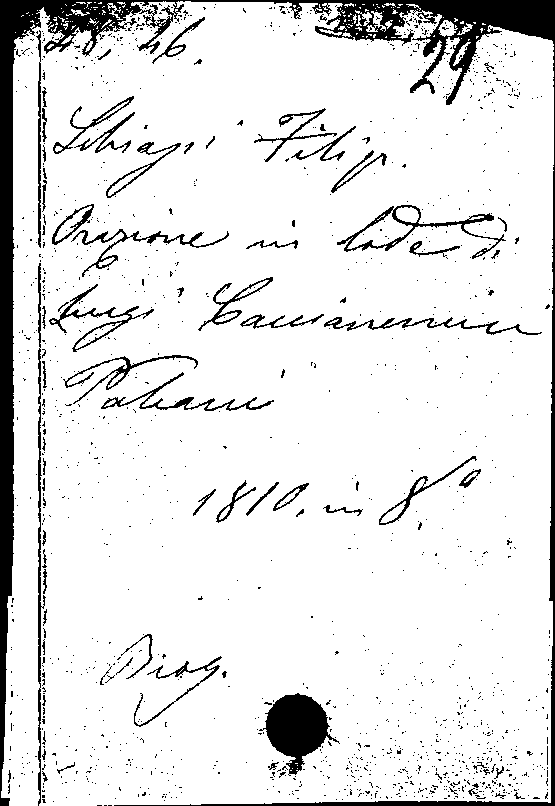 28, 46.
29
Schiassi Filip.
Orazione in lode di
Luigi Caccianemici
Palcani
1810. in 8.º
Biog.